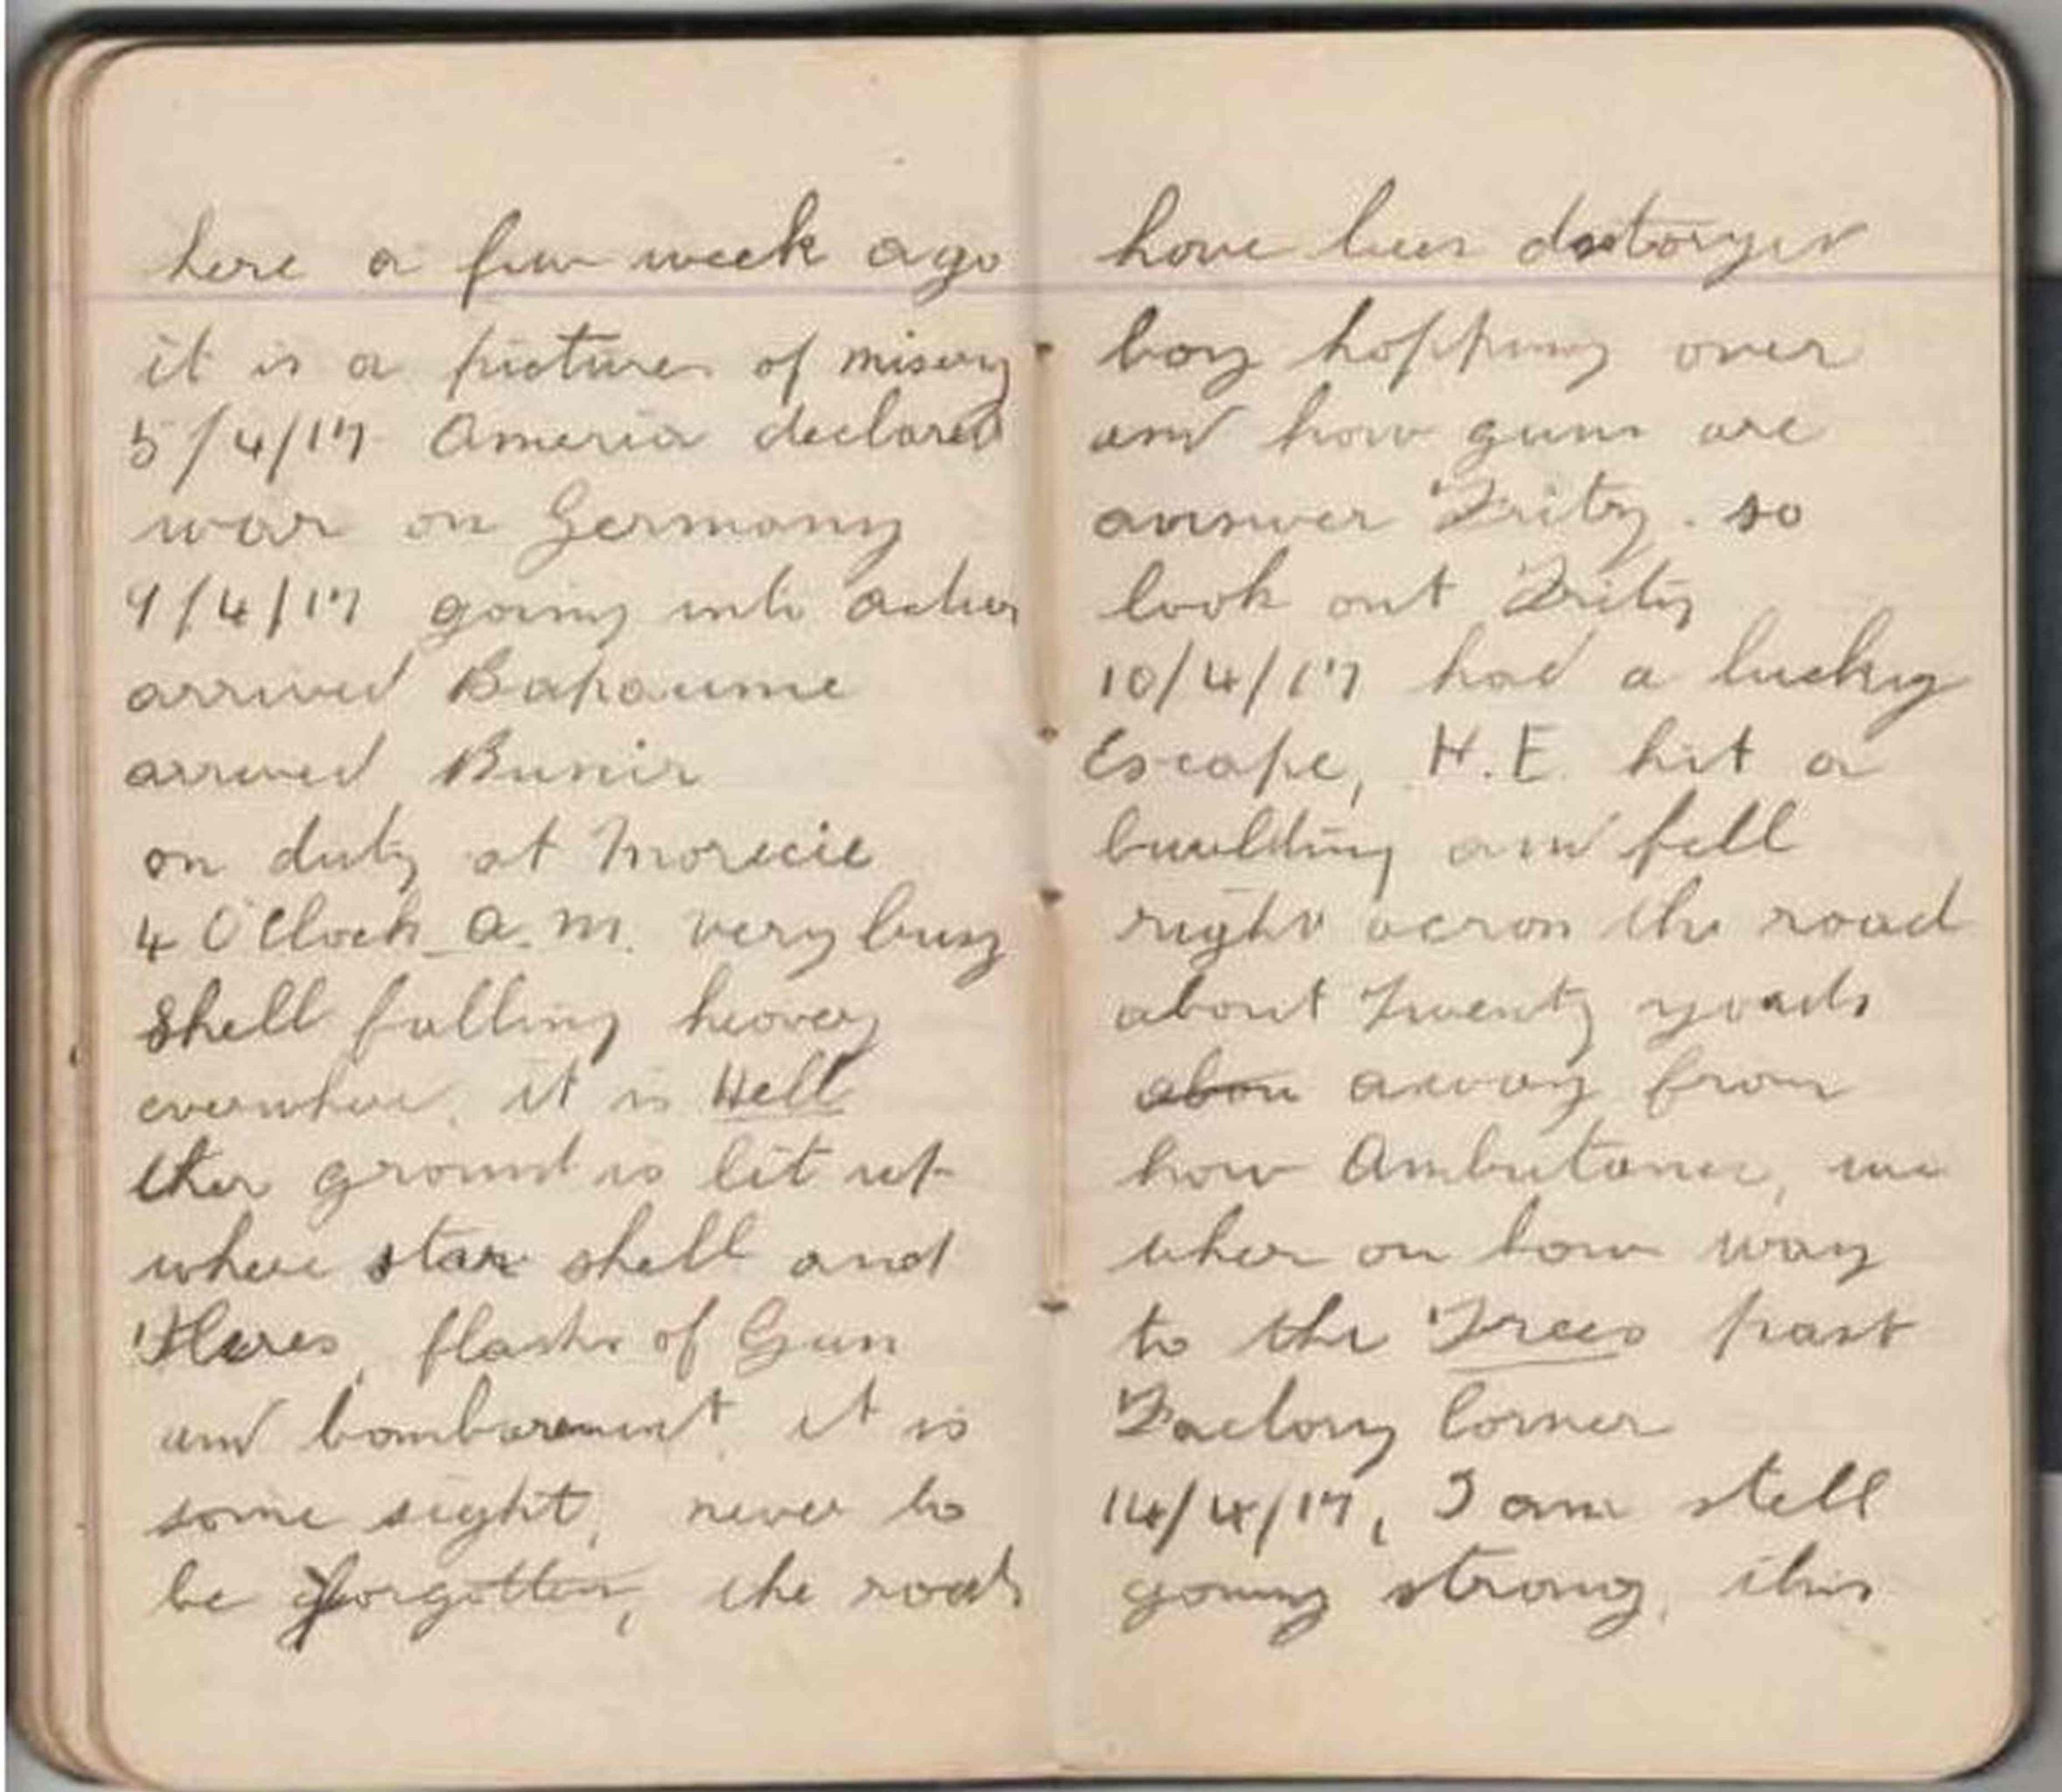 here a few week ago
it is a picture of misery
5/4/17 America declared
war on Germany
9/4/17 going into action
arrived Bapaume
arrived Bunir
on duty at Moricie
4 O'Clock a.m. very busy
Shell falling heavey
everwhere, it is Hell
ther ground is lit up
where star shell and
Flares, flashs of Gun
and bombarement it is
some sight, never to
be forgotten, the roads
have been dstoryed
boy hopping over
and how guns are
answer Fritz. so
look out Fritz
10/4/17 had a luckey
Escape, H.E. hit a
buulding and fell
right across the road
about Twenty yards
abou away from
how Ambulance, we
wher on how way
to the Trees past
Factory Corner
14/4/17, I am still
going strong, this